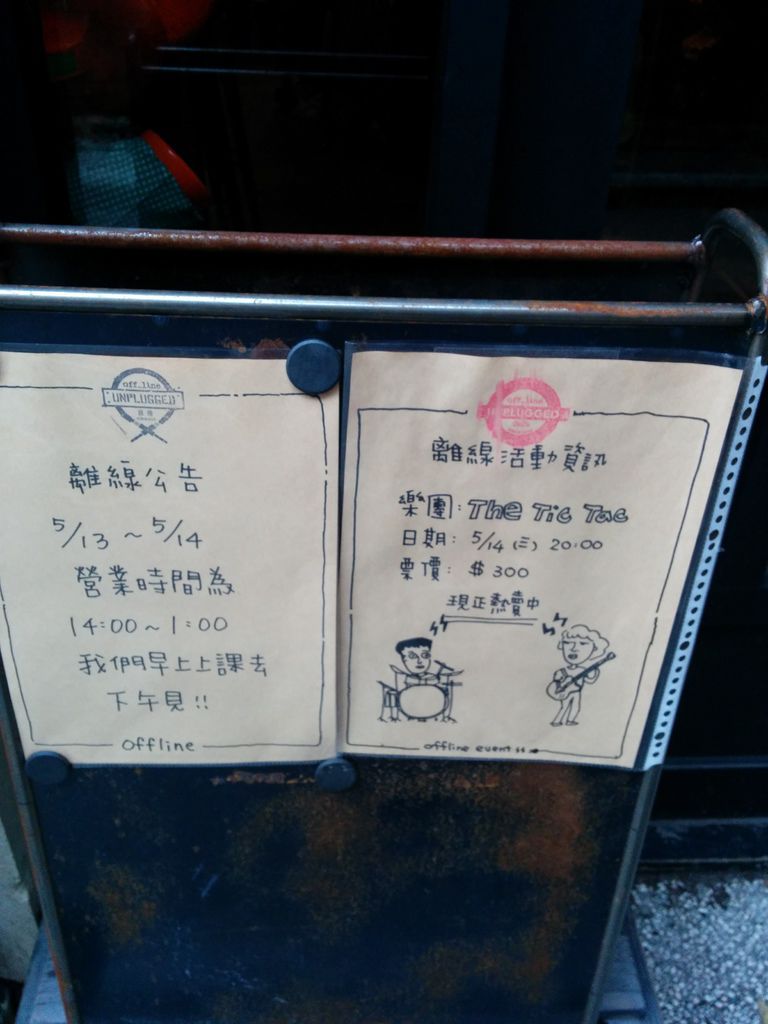 off_line
UNPLUGGED
離線公告
5/13 ~ 5/14
營業時間為
14:00 ~ 1:00
我們早上上課去
下午見!!
offline
off_line
UNPLUGGED
離線活動資訊
樂團: The Tic Tac
日期: 5/14 (三) 20:00
票價: $300
現正熱賣中
offline event